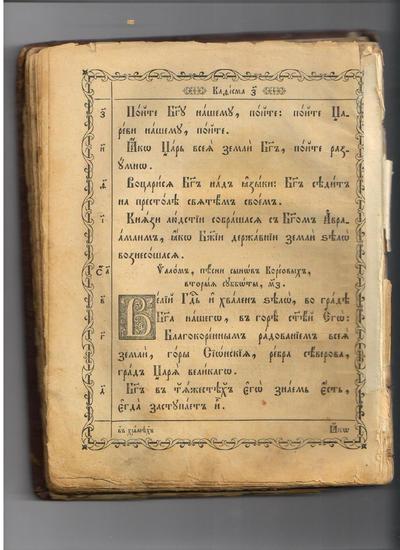 Каѳісма з҃
з҃ По́йте Бг҃у на́шему, по́йте: по́йте Ца-
ре́ви на́шему, по́йте.
и҃ Ꙗ҆́кѡ Цр҃ь всеѧ̀ землѝ Бг҃ъ, по́йте раз-
ꙋ́мнѡ.
ѳ҃ Воцари́сѧ Бг҃ъ над̾ ꙗ҆зы́ки: Бг҃ъ сѣди́тъ
на престо́лѣ свѧтѣ́мъ свое́мъ.
і҃ Кнѧ̑зи лю́дстїи собра́шасѧ с̾ Бг҃омъ А҆вра-
а́млимъ, ꙗ҆́кѡ Бж҃їи держа́внїи землѝ ѕѣлѡ̀
вознесо́шасѧ.
Ѱало́мъ, пѣ́сни сынѡ́въ Коре́овыхъ,
вторы́ѧ суббѡ́ты, мз҃.
в҃ Ве́лїй Гд҇ь и҆ хва́ленъ ѕѣлѡ̀, во гра́дѣ
Бг҃а на́шегѡ, въ горѣ̀ ст҃ѣ́й Е҆гѡ̀:
г҃ Благокоре́ннымъ ра́дованїемъ всеѧ̀
землѝ, го́ры Сїѡ́нскїѧ, ре́бра сѣ́верова,
гра́дъ Царѧ̀ вели́кагѡ.
д҃ Бг҃ъ въ тѧ́жестехъ є҆гѡ̀ зна́емь є҆́сть,
є҆гда̀ заступа́етъ и҆̀.
Ꙗ҆́кѡ